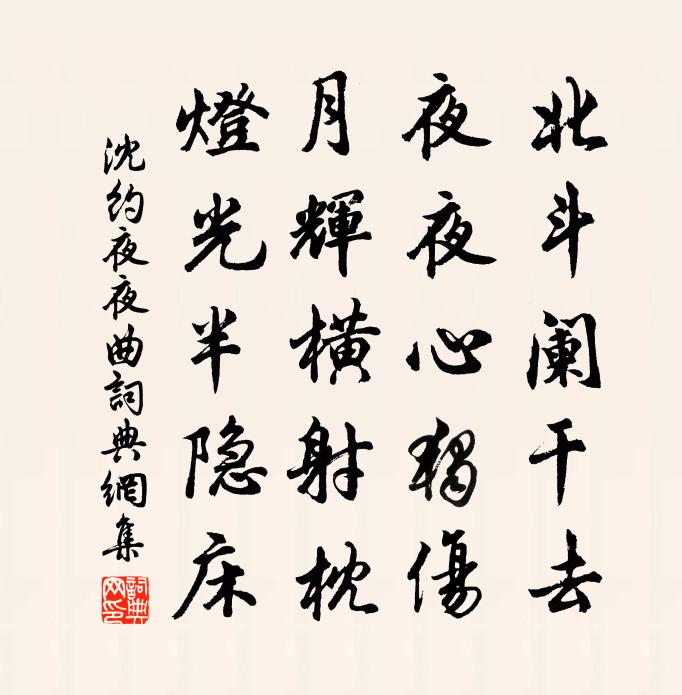 北斗阑干去
夜夜心獨傷
月輝橫射枕
燈光半隐床
沈約夜夜曲詞典網集
詞典網印